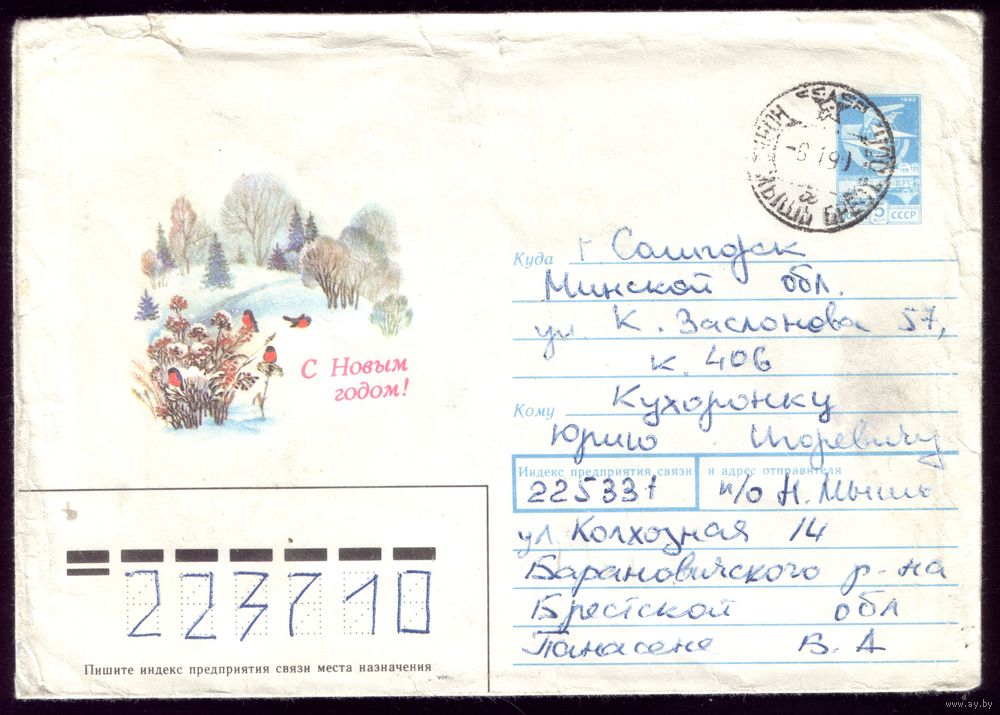 1982
5
СССР
Куда г. Солигорск
Минской обл.
ул К. Заслонова 57,
к. 406
Кому Кухоронку
Юрию Игоревичу
С Новым
годом!
Индекс предприятия связи и адрес отправителя
225331 п/о Н. Мышь
ул. Колхозная 14
Барановичского р-на
Брестской обл
Панасене В. А
223710
Пишите индекс предприятия связи места назначения
www.ay.by